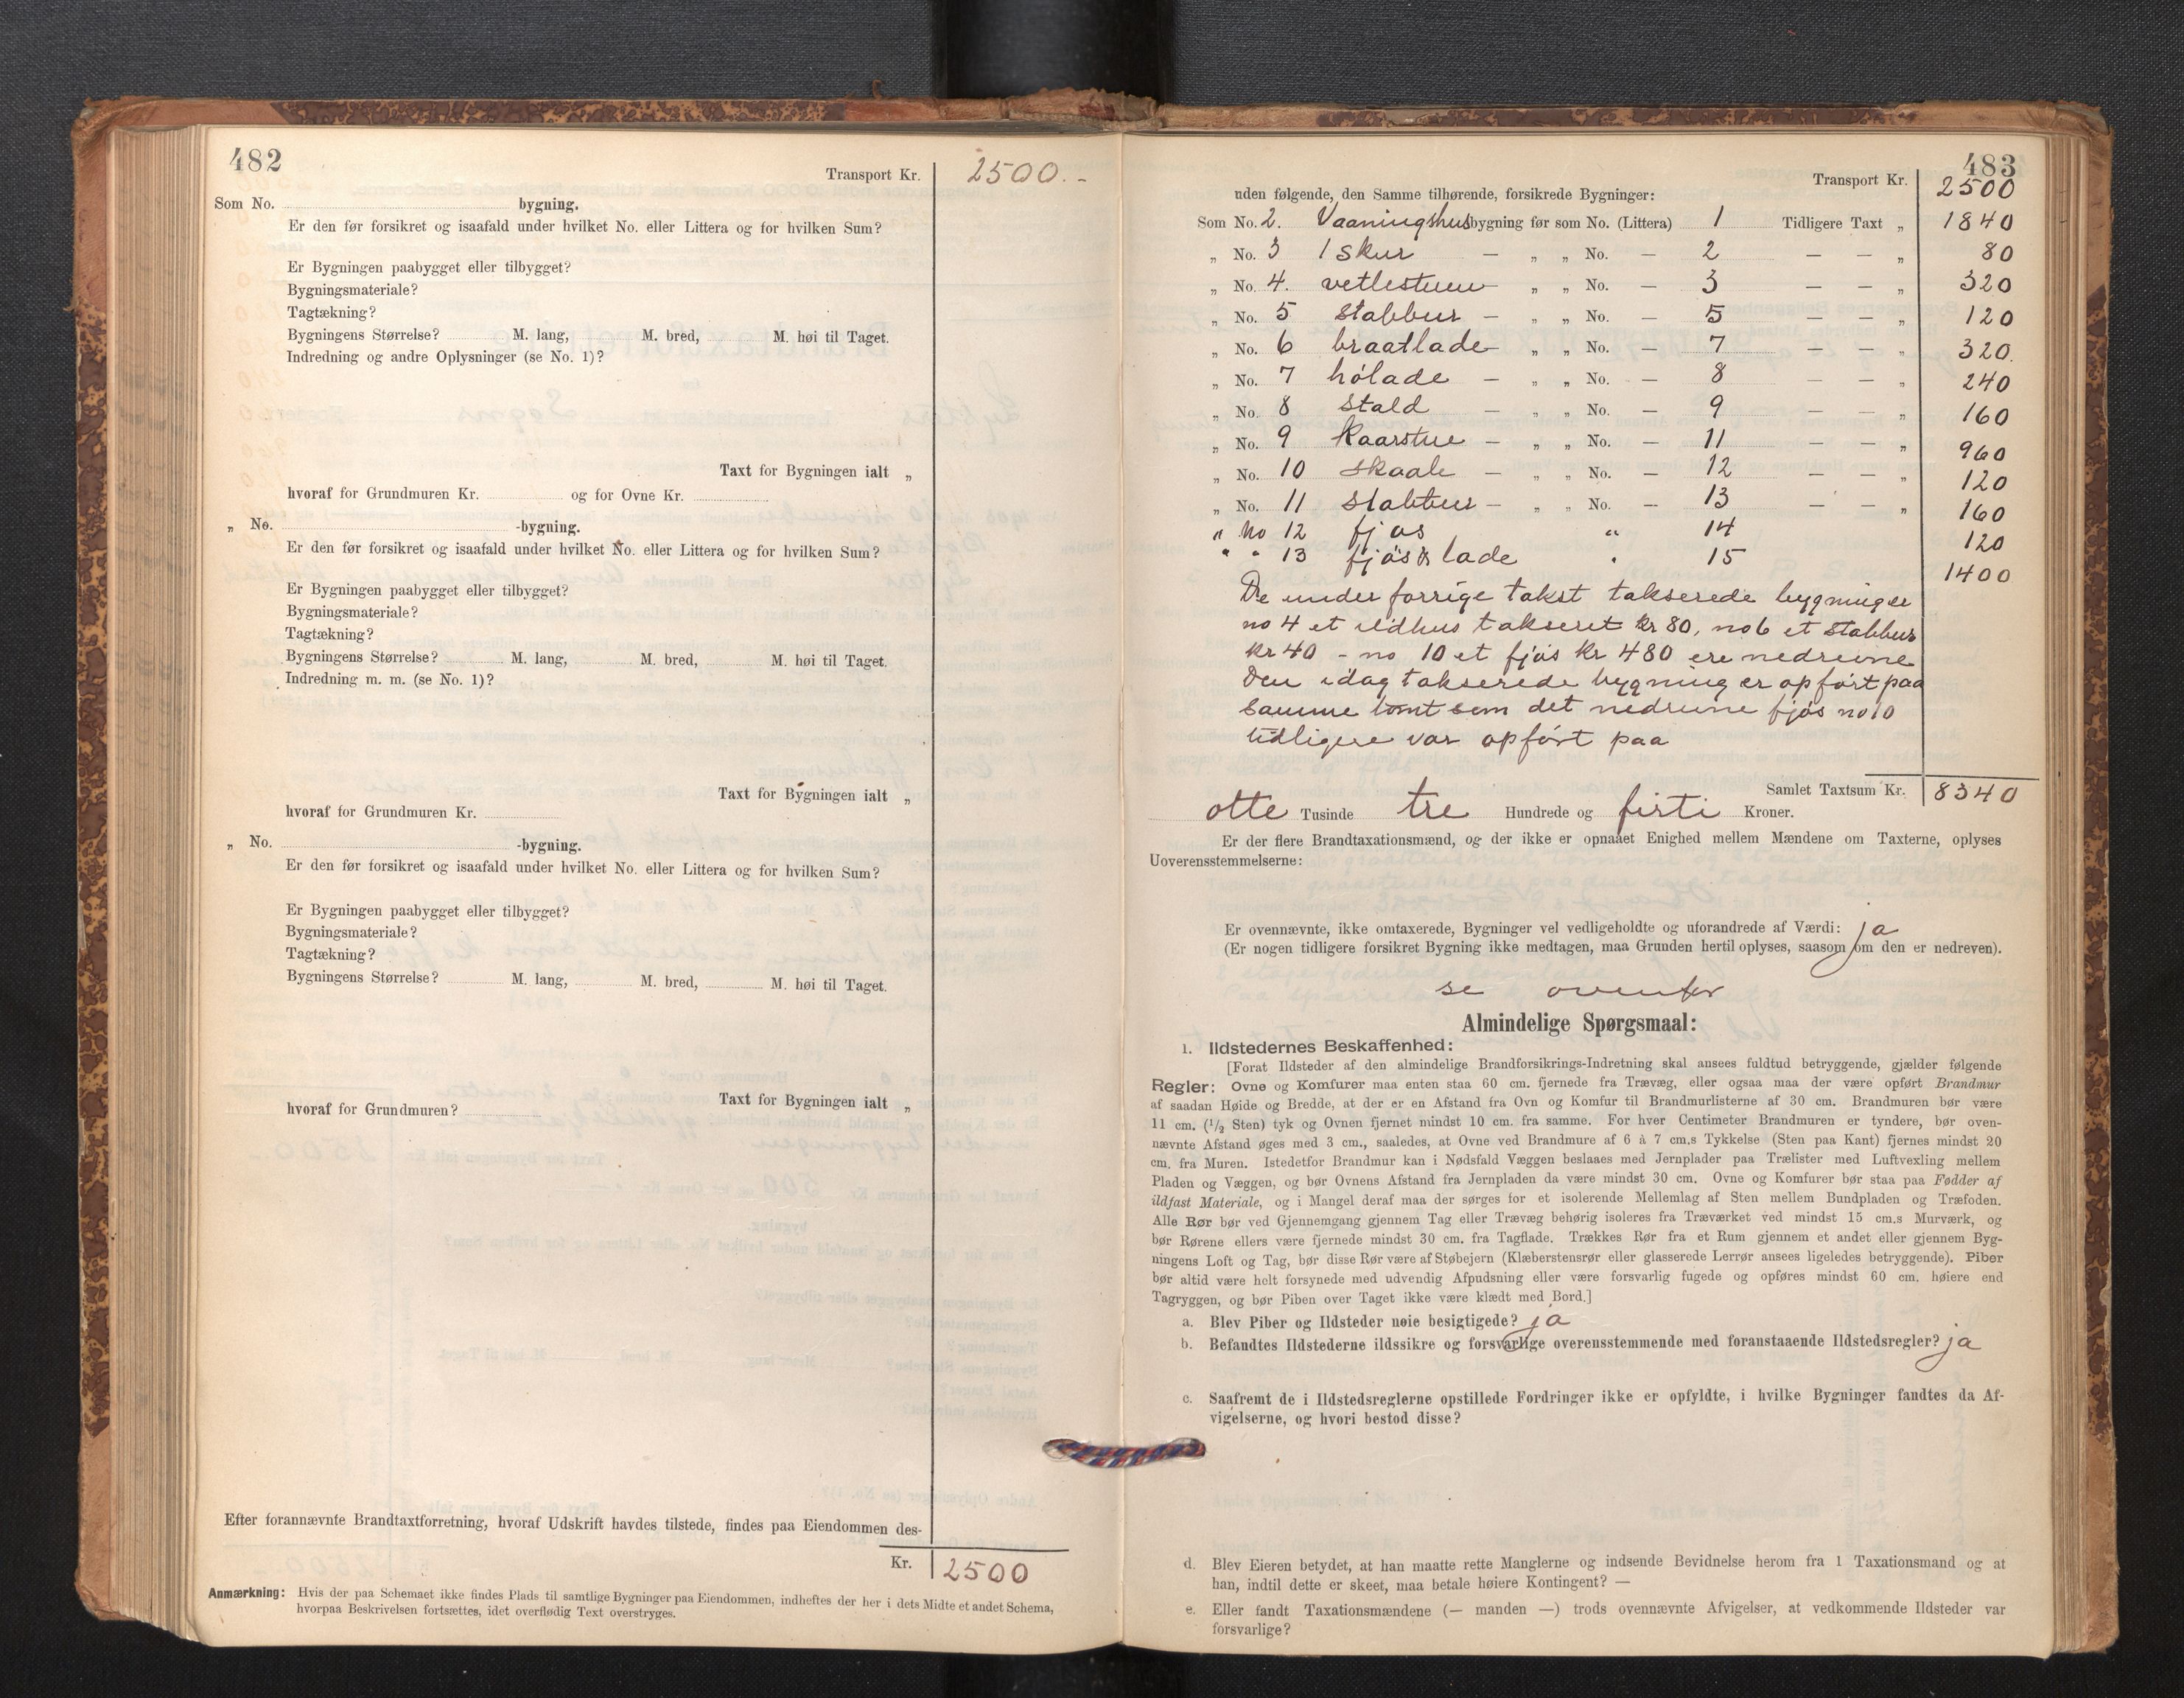 482
Transport Kr. 2500.-
Som No. bygning.
Er den før forsikret og isaafald under hvilket No. eller Littera og for hvilken Sum?
Er Bygningen paabygget eller tilbygget?
Bygningsmateriale?
Tagtækning?
Bygningens Størrelse? M. lang, M. bred, M. høi til Taget.
Indredning og andre Oplysninger (se No. 1)?
Taxt for Bygningen ialt „
hvoraf for Grundmuren Kr. og for Ovne Kr.
„ No. -bygning.
Er den før forsikret og isaafald under hvilket No. eller Littera og for hvilken Sum?
Er Bygningen paabygget eller tilbygget?
Bygningsmateriale?
Tagtækning?
Bygningens Størrelse? M. lang, M. bred, M. høi til Taget.
Indredning m. m. (se No. 1)?
Taxt for Bygningen ialt „
hvoraf for Grundmuren Kr.
„ No. -bygning.
Er den før forsikret og isaafald under hvilket No. eller Littera og for hvilken Sum?
Er Bygningen paabygget eller tilbygget?
Bygningsmateriale?
Tagtækning?
Bygningens Størrelse? M. lang, M. bred, M. høi til Taget.
Taxt for Bygningen ialt „
hvoraf for Grundmuren?
Efter forannævnte Brandtaxtforretning, hvoraf Udskrift havdes tilstede, findes paa Eiendommen des-
Kr. 2500
Anmærkning: Hvis der paa Schemaet ikke findes Plads til samtlige Bygninger paa Eiendommen, indheftes der her i dets Midte et andet Schema,
hvorpaa Beskrivelsen fortsættes, idet overflødig Text overstryges.
483
Transport Kr. 2500
uden følgende, den Samme tilhørende, forsikrede Bygninger:
Som No. 2. Vaaningshus bygning før som No. (Littera) 1 Tidligere Taxt „ 1840
„ No. 3 1 skur — „ „ No. — 2 — — „ 80
„ No. 4. vetlestuen — „ „ No. — 3 — — „ 320
„ No. 5 stabbur — „ „ No. — 5 — — „ 120
„ No. 6 braatlade — „ „ No. — 7 — — „ 320.
„ No. 7 hólade — „ „ No. — 8 — — „ 240
„ No. 8 stald — „ „ No. — 9 — — „ 160
„ No. 9 Kaarstue — „ „ No. — 11 — — „ 960
„ No. 10 skaale — „ „ No. — 12 — — „ 120
„ No. 11 stabbur — „ „ No. — 13 — — „ 160
„ No 12 fjøs „ 14 120
„ „ 13 fjós & lade „ 15 1400
De under forrige takst takserede bygninger
no 4 et ildhus takseret kr 80, no 6 et stabbur
kr 40 - no 10 et fjós kr 480 ere nedrevne
Den idag takserede bygning er opfórt paa
samme tomt som det nedrevne fjós no 10
tidligere var opfórt paa
Samlet Taxtsum Kr. 8340
otte Tusinde tre Hundrede og firti Kroner.
Er der flere Brandtaxationsmænd, og der ikke er opnaaet Enighed mellem Mændene om Taxterne, oplyses
Uoverensstemmelserne:
Er ovennævnte, ikke omtaxerede, Bygninger vel vedligeholdte og uforandrede af Værdi: ja
(Er nogen tidligere forsikret Bygning ikke medtagen, maa Grunden hertil oplyses, saasom om den er nedreven).
se ovenfor
Almindelige Spørgsmaal:
1. Ildstedernes Beskaffenhed:
[Forat Ildsteder af den almindelige Brandforsikrings-Indretning skal ansees fuldtud betryggende, gjælder følgende
Regler: Ovne og Komfurer maa enten staa 60 cm. fjernede fra Trævæg, eller ogsaa maa der være opført Brandmur
af saadan Høide og Bredde, at der er en Afstand fra Ovn og Komfur til Brandmurlisterne af 30 cm. Brandmuren bør være
11 cm. (1/2 Sten) tyk og Ovnen fjernet mindst 10 cm. fra samme. For hver Centimeter Brandmuren er tyndere, bør oven-
nævnte Afstand øges med 3 cm., saaledes, at Ovne ved Brandmure af 6 à 7 cm.s Tykkelse (Sten paa Kant) fjernes mindst 20
cm. fra Muren. Istedetfor Brandmur kan i Nødsfald Væggen beslaaes med Jernplader paa Trælister med Luftvexling mellem
Pladen og Væggen, og bør Ovnens Afstand fra Jernpladen da være mindst 30 cm. Ovne og Komfurer bør staa paa Fødder af
ildfast Materiale, og i Mangel deraf maa der sørges for et isolerende Mellemlag af Sten mellem Bundpladen og Træfoden.
Alle Rør bør ved Gjennemgang gjennem Tag eller Trævæg behørig isoleres fra Træværket ved mindst 15 cm.s Murværk, og
bør Rørene ellers være fjernede mindst 30 cm. fra Tagflade. Trækkes Rør fra et Rum gjennem et andet eller gjennem Byg-
ningens Loft og Tag, bør disse Rør være af Støbejern (Klæberstensrør eller glasserede Lerrør ansees ligeledes betryggende). Piber
bør altid være helt forsynede med udvendig Afpudsning eller være forsvarlig fugede og opføres mindst 60 cm. høiere end
Tagryggen, og bør Piben over Taget ikke være klædt med Bord.]
a. Blev Piber og Ildsteder nøie besigtigede? ja
b. Befandtes Ildstederne ildssikre og forsvarlige overensstemmende med foranstaaende Ildstedsregler? ja
c. Saafremt de i Ildstedsreglerne opstillede Fordringer ikke er opfyldte, i hvilke Bygninger fandtes da Af-
vigelserne, og hvori bestod disse?
d. Blev Eieren betydet, at han maatte rette Manglerne og indsende Bevidnelse herom fra 1 Taxationsmand og at
han, indtil dette er skeet, maa betale høiere Kontingent? —
e. Eller fandt Taxationsmændene (— manden —) trods ovennævnte Afvigelser, at vedkommende Ildsteder var
forsvarlige?